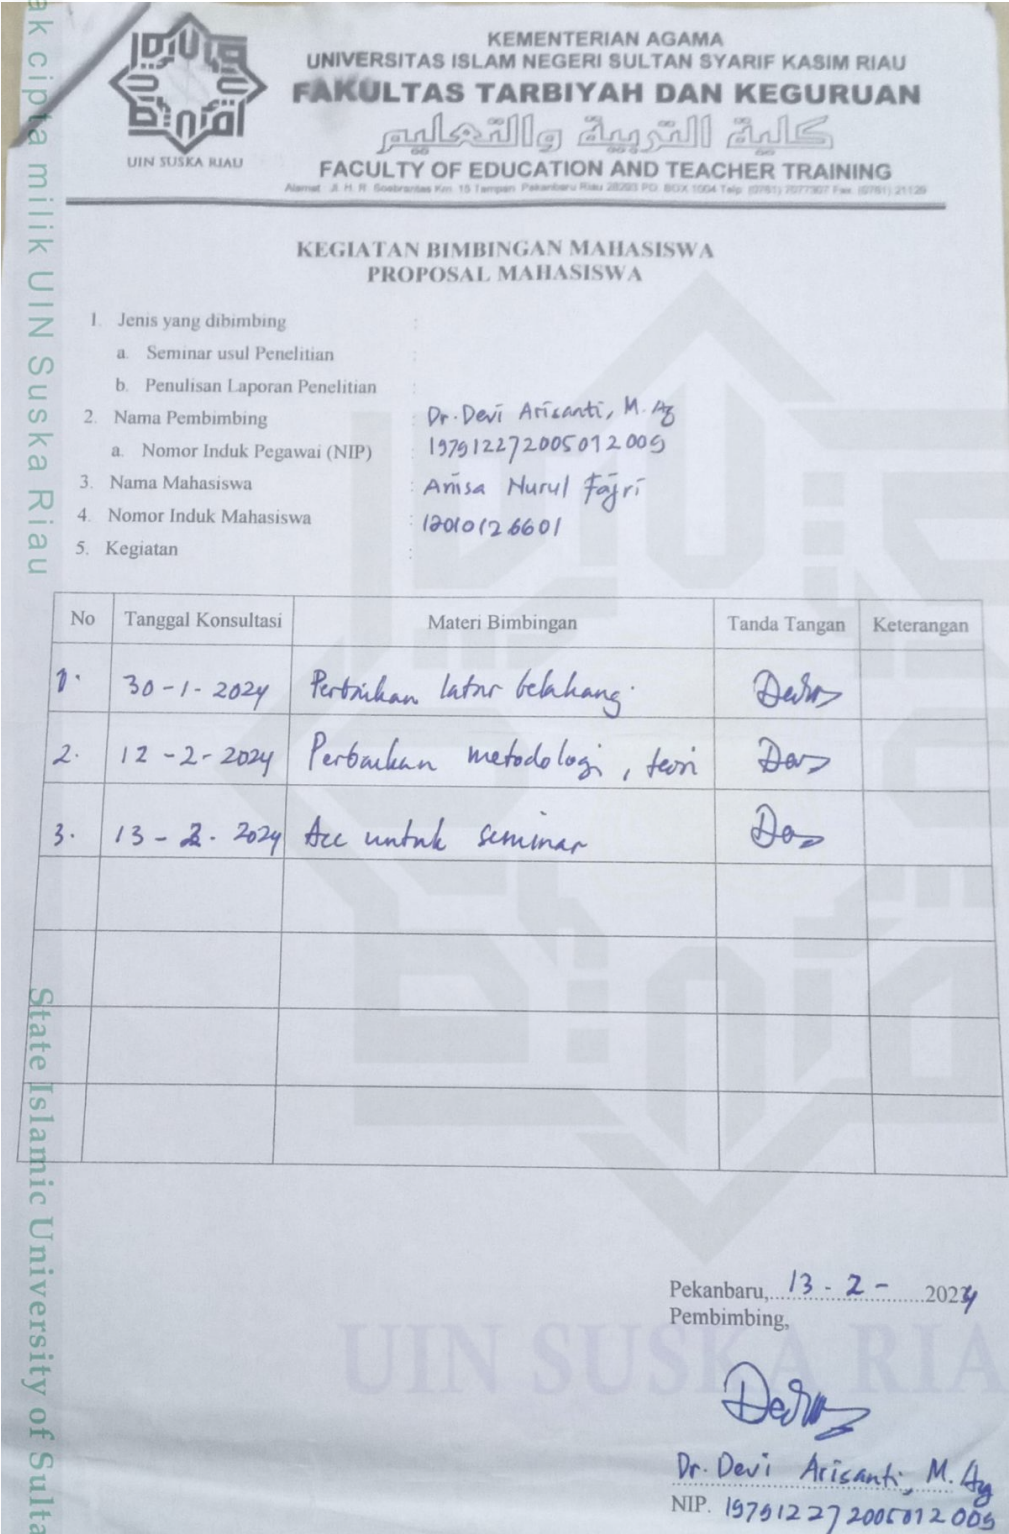 KEMENTERIAN AGAMA
UNIVERSITAS ISLAM NEGERI SULTAN SYARIF KASIM RIAU
FAKULTAS TARBIYAH DAN KEGURUAN
كلية التربية والتعليم
FACULTY OF EDUCATION AND TEACHER TRAINING
Alamat : Jl. H. R. Soebrantas Km. 15 Tampan Pekanbaru Riau 28293 PO. BOX 1004 Telp. (0761) 7077307 Fax. (0761) 21129
UIN SUSKA RIAU
KEGIATAN BIMBINGAN MAHASISWA
PROPOSAL MAHASISWA
1. Jenis yang dibimbing :
a. Seminar usul Penelitian :
b. Penulisan Laporan Penelitian :
2. Nama Pembimbing : Dr. Devi Arisanti, M. Ag
a. Nomor Induk Pegawai (NIP) : 197912272005012009
3. Nama Mahasiswa : Anisa Nurul Fajri
4. Nomor Induk Mahasiswa : 12010126601
5. Kegiatan :
No Tanggal Konsultasi Materi Bimbingan Tanda Tangan Keterangan
1. 30-1-2024 Perbaikan latar belakang.
2. 12-2-2024 Perbaikan metodologi, teori
3. 13-2-2024 Acc untuk seminar
Pekanbaru, 13-2-2024
Pembimbing,
UIN SUSKA RIA
Dr. Devi Arisanti, M. Ag
NIP. 197912272005012009
ak cipta milik UIN Suska Riau
State Islamic University of Sulta